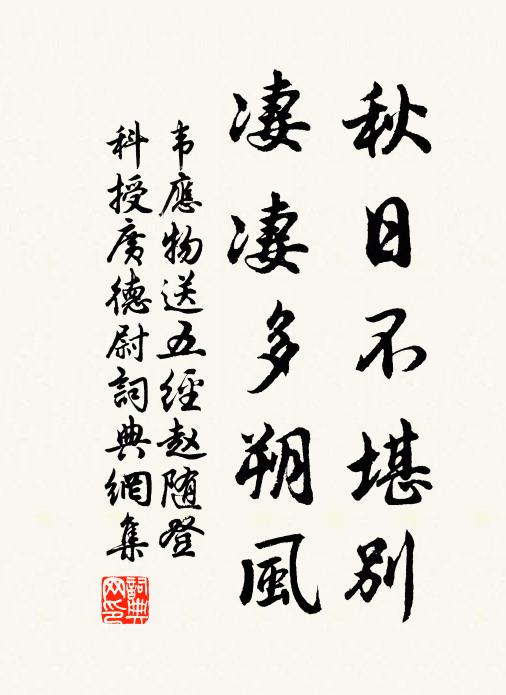 秋日不堪別
淒淒多朔風
韦應物送五經赵随登
科授廣德尉詞典網集
詞典
网印